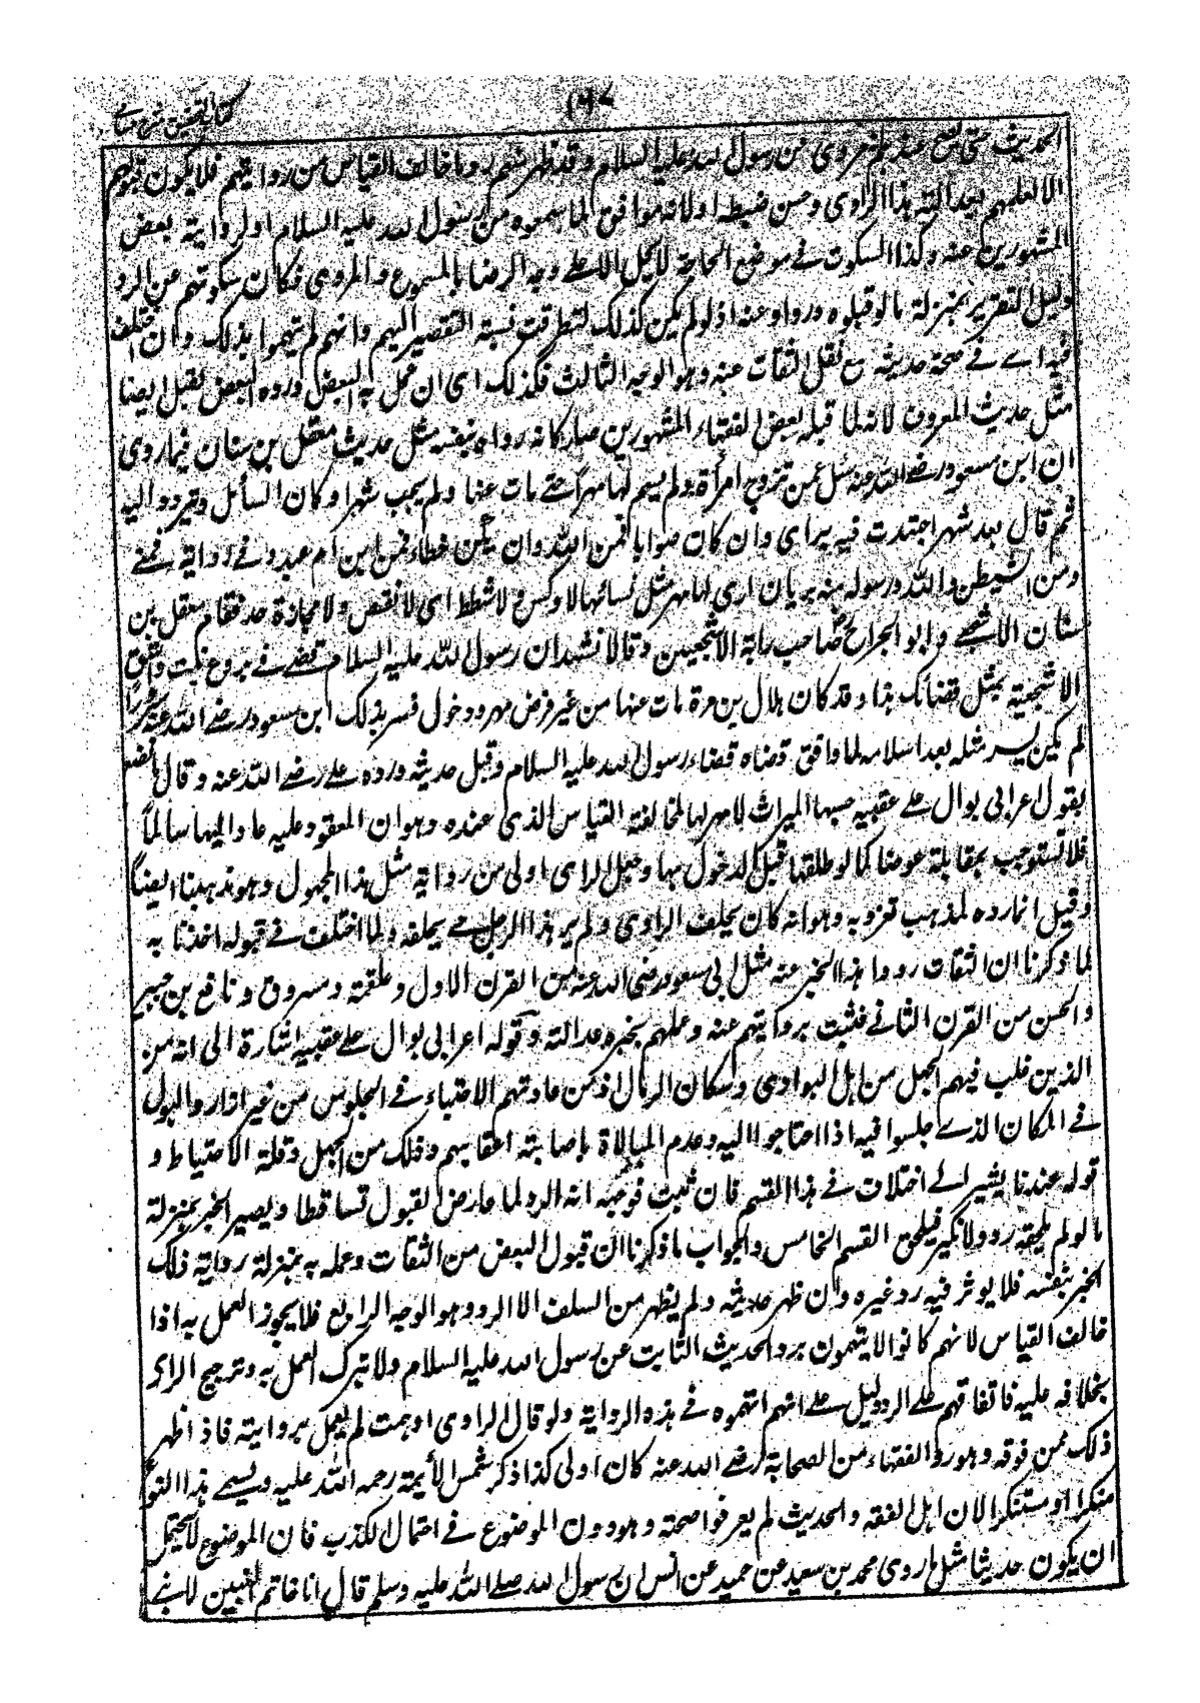 كتاب التحقيق شرح حسامى
١٦٧
الحديث حتى يصح عندهم انه مروى عن رسول الله عليه السلام وقد ظهر منهم رد ما خالف القياس من روايتهم فلا يكون قبولهم
الا لعلمهم بعدالة هذا الراوى وحسن ضبطه او لانه موافق لما سمعوه من رسول الله عليه السلام او لرواية بعض
المشهورين عنه وكذا السكوت فى موضع الحاجة لا يحل الا على وجه الرضا بالمسموع والمروى فكان سكوتهم عن الرد
دليل التقرير بمنزلة ما لو قبلوه ورووا عنه اذ لو لم يكن كذلك لتطرقت نسبة التقصير اليهم وانهم لم يتهموا بذلك وان اختلف
فيه اى فى صحة حديثه مع نقل الثقات عنه وهو الوجه الثالث فكذلك اى ان عمل به البعض ورده البعض يقبل ايضا
مثل حديث المعروف لانه لما قبله بعض الفقهاء المشهورين صار كانه رواه بنفسه مثل حديث معقل بن سنان فيما روى
ان ابن مسعود رضى الله عنه سئل عمن تزوج امرأة ولم يسم لها مهرا حتى مات عنها ولم يجب شهرا وكان السائل يتردد اليه
ثم قال بعد شهر اجتهدت فيه برأى وان كان صوابا فمن الله وان يكن خطاء فمن ابن ام عبد وفى رواية فمنى
ومن الشيطن والله ورسوله منه بريان ارى لها مهر مثل نسائها لا وكس ولا شطط اى لا نقص ولا مجاوزة حد فقام معقل بن
سنان الاشجعى وابو الجراح صاحب راية الاشجعيين وقالا نشهد ان رسول الله عليه السلام قضى فى بروع بنت واشق
الاشجعية بمثل قضائك هذا وقد كان هلال بن مرة مات عنها من غير فرض مهر ودخول فسر بذلك ابن مسعود رضى الله عنه سرورا
لم يكن يسر مثله بعد اسلامه لما وافق قضاه قضاء رسول الله عليه السلام وقبل حديثه ورده على رضى الله عنه وقال ما نصنع
بقول اعرابى بوال على عقبيه حسبها الميراث لا مهر لها لمخالفته القياس الذى عنده وهو ان المعقود عليه عاد اليها سالما
فلا تستوجب بمقابلته عوضا كما لو طلقها قبل الدخول بها وجعل الراى اولى من رواية مثل هذا المجهول وهو مذهبنا ايضا
وقيل انما رده لمذهب تفرد به وهو انه كان يحلف الراوى ولم ير هذا الرجل حتى يحلفه ولما اختلف فى قبوله اخذنا به
لما ذكرنا ان الثقات رووا هذا الخبر عنه مثل ابى مسعود رضى الله عنه من القرن الاول وعلقمة ومسروق ونافع بن جبير
والحسن من القرن الثانى فثبت بروايتهم عنه وعملهم بخبره عدالته وقوله اعرابى بوال على عقبيه اشارة الى انه من
الذين غلب فيهم الجهل من اهل البوادى وسكان الرمال اذ من عادتهم الاحتباء فى الجلوس من غير ازار والبول
فى المكان الذى جلسوا فيه اذا احتاجوا اليه وعدم المبالاة باصابته اعقابهم وذلك من الجهل وقلة الاحتياط و
قوله عندنا يشير الى اختلاف فى هذا القسم فان ثبت فوجهه انه الرد لما عارض القبول تساقطا ويصير الخبر بمنزلة
ما لو لم يلحقه رد ولا نكير فيلحق القسم الخامس والجواب ما ذكرنا ان قبول البعض من الثقات وعمله به بمنزلة رواية ذلك
الخبر بنفسه فلا يوثر فيه رد غيره وان ظهر حديثه ولم يظهر من السلف الا الرد وهو الوجه الرابع فلا يجوز العمل به اذا
خالف القياس لانهم كانوا لا يتهمون برد الحديث الثابت عن رسول الله عليه السلام ولا بترك العمل به وترجيح الراى
بخلافه عليه فاتفاقهم على الرد دليل على انهم اتهموه فى هذه الرواية ولو قال الراوى اوهمت لم يعمل بروايته فاذا ظهر
ذلك ممن فوقه وهو رد الفقهاء من الصحابة رضى الله عنه كان اولى كذا ذكر شمس الأيمة رحمه الله عليه ويسمى هذا النوع
منكرا او مستنكرا لان اهل الفقه والحديث لم يعرفوا صحته وهو دون الموضوع فى احتمال الكذب فان الموضوع لا يحتمل
ان يكون حديثا مثل ما روى محمد بن سعيد عن حميد عن انس ان رسول الله صلى الله عليه وسلم قال انا خاتم النبيين لا نبى